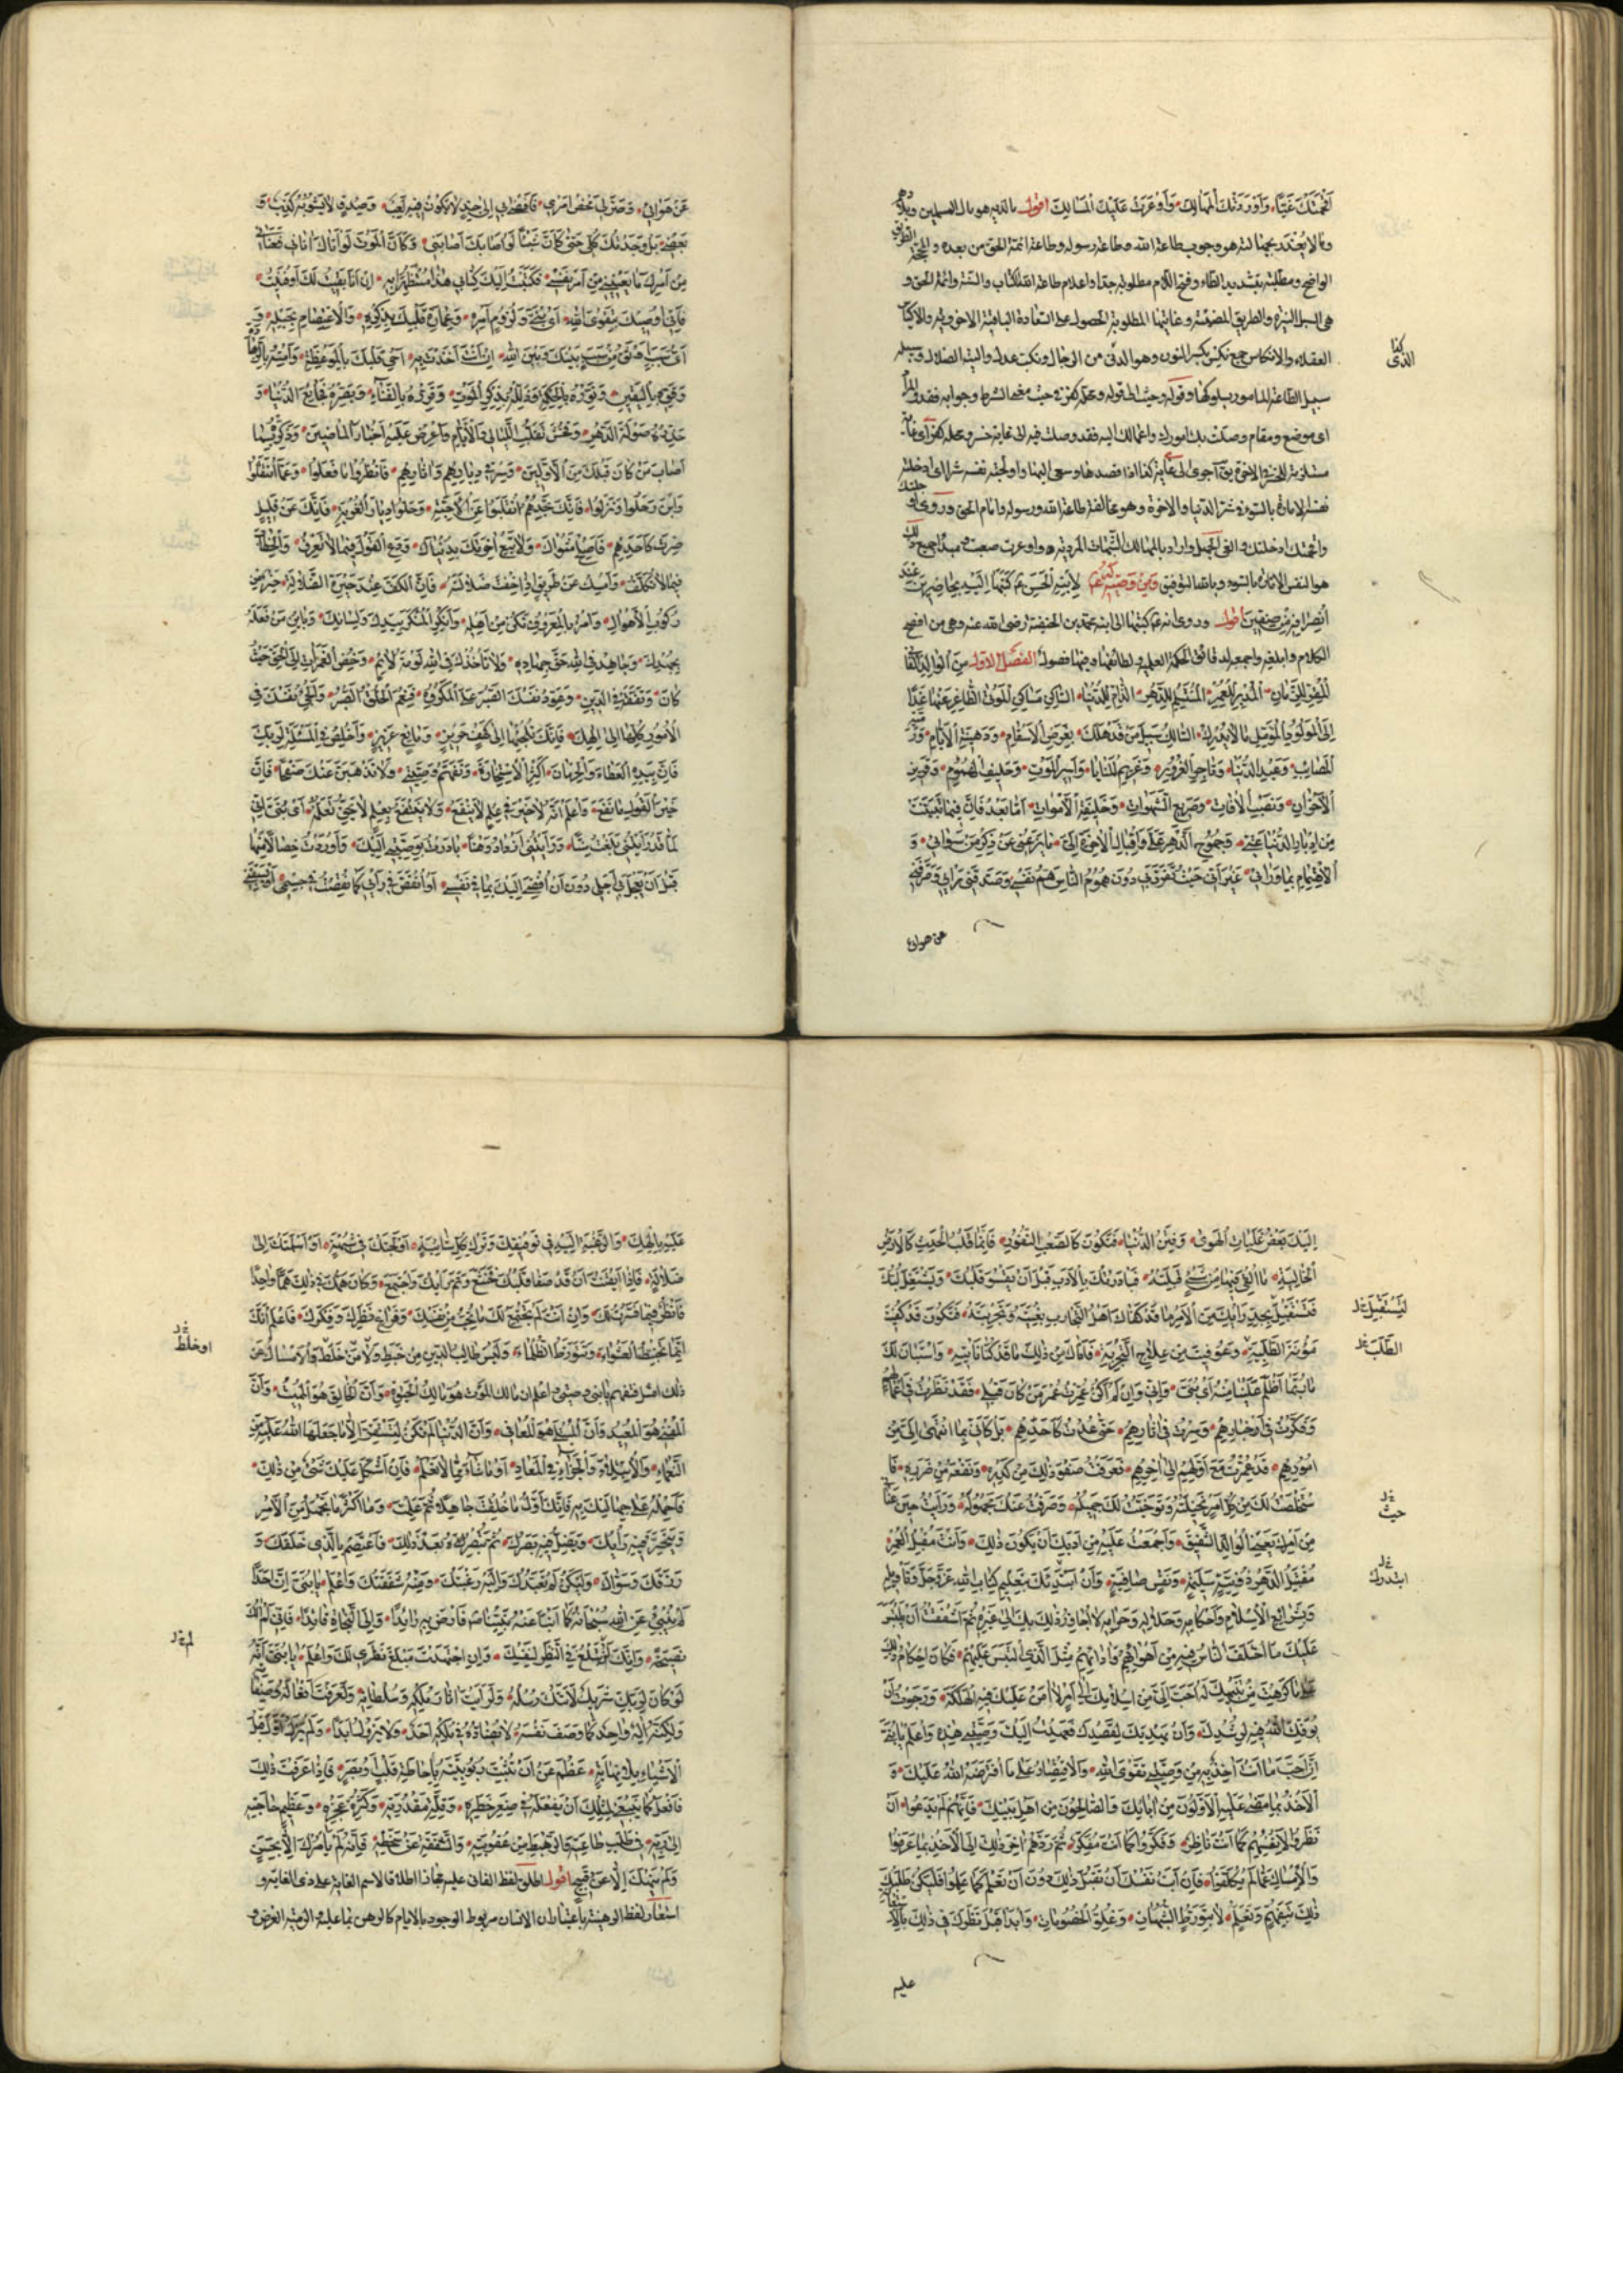 أقحمتك غيّا وأوردتك المهالك وأوعرت عليك المسالك اقول
وما لا يُعذر بجهالته هو وجوب طاعة الله وطاعة رسوله وطاعة ائمة الحق من بعده
الواضحة ومطلبة بتشديد الطاء وفتح اللام مطلوبة جدا واعلام طاعة الله الكتاب والسنة وائمة الحق و
هي السبل النيرة والطريق وغايتها المطلوبة الحصول على السعادة الباقية الاخروية والاكياس
العقلاء والانكاس جمع نكس بكسر النون وهو الدنى من الرجال ونكب عدل والتيه الضلال وسبيله
سبيل الطاعة المامور بسلوكها وقوله وحيث الى قوله ومحلة كفر حيث معنى الشرط وجوابه فقد
اى موضع ومقام وصلت بك امورك واعمالك اليه فقد وصلت فيه الى غاية خسر ومحلة كفر
الاخرة يقال اجرى الى غاية كذا اذا قصدها وسعى اليها واولجته نفسه شرا اى ادخلته
نفسه الامارة بالسوء في شر الدنيا والاخرة وهو مخالفة طاعة الله ورسوله وامام الحق وروى
واقحمتك ادخلتك والغى الجهل واراد بالمهالك الشبهات المردية واوعرت صعبت ومبدأ جميع ذلك
هو النفس الامارة بالسوء وبالله التوفيق ومن وصيّة له ع لابنه الحسن ع كتبها اليه بحاضرين عند
انصرافه من صفين اقول وروى انه ع كتبها الى ابنه محمد بن الحنفية رضى الله عنه وهى من افصح
الكلام وابلغه واجمعه لدقائق الحكمة العملية ولطائفها وفيها فصول الفصل الاول من الوالد الفان
المقرّ للزمان المدبر العمر المستسلم للدهر الذام للدنيا الساكن مساكن الموتى الظاعن عنها غدا
الى المولود المؤمّل ما لا يدرك السالك سبيل من قد هلك غرض الاسقام ورهينة الايام ورميّة
المصائب وعبد الدنيا وتاجر الغرور وغريم المنايا واسير الموت وحليف الهموم وقرين
الاحزان ونصب الآفات وصريع الشهوات وخليفة الاموات امّا بعد فانّ فيما تبيّنت
من ادبار الدنيا عنّى وجموح الدهر علىّ واقبال الآخرة الىّ ما يزعنى عن ذكر من سواى و
الاهتمام بما ورائى غير أنّى حيث تفرّد بى دون هموم الناس همّ نفسى فصدقنى رأيى وصرفنى
عن هواى
كفا
الذى
عن هواى وصرّح لى محض امرى فافضى بى الى جدّ لا يكون فيه لعب وصدق لا يشوبه كذب و
بعضى بل وجدتك كلّى حتى كأنّ شيئا لو اصابك اصابنى وكأنّ الموت لو اتاك اتانى فعنانى
من امرك ما يعنينى من امر نفسى فكتبت اليك كتابى هذا مستظهرا به ان انا بقيت لك او فنيت
فانّى اوصيك بتقوى الله اى بنىّ ولزوم امره وعمارة قلبك بذكره والاعتصام بحبله و
اىّ سبب اوثق من سبب بينك وبين الله ان انت اخذت به احى قلبك بالموعظة وامته بالزهادة
وقوّه باليقين ونوّره بالحكمة وذلّله بذكر الموت وقرّره بالفناء وبصّره فجائع الدنيا و
حذّره صولة الدهر وفحش تقلّب الليالى والايام واعرض عليه اخبار الماضين وذكّره بما
اصاب من كان قبلك من الاولين وسر فى ديارهم وآثارهم فانظر ما فعلوا وعمّا انتقلوا
واين حلّوا ونزلوا فانك تجدهم انتقلوا عن الاحبّة وحلّوا ديار الغربة وكانك عن قليل
صرت كاحدهم فاصلح مثواك ولا تبع آخرتك بدنياك ودع القول فيما لا تعرف والخطاب
فيما لا تكلّف وامسك عن طريق اذا خفت ضلالته فان الكفّ عند حيرة الضلالة خير من
ركوب الاهوال وامر بالمعروف تكن من اهله وانكر المنكر بيدك ولسانك وباين من فعله
بجهدك وجاهد فى الله حقّ جهاده ولا تأخذك فى الله لومة لائم وخض الغمرات الى الحقّ حيث
كان وتفقّه فى الدين وعوّد نفسك الصبر على المكروه فنعم الخلق الصبر والجئ نفسك فى
الامور كلّها الى الهك فانك تلجئها الى كهف حريز ومانع عزيز واخلص فى المسئلة لربّك
فانّ بيده العطاء والحرمان واكثر الاستخارة وتفهّم وصيّتى ولا تذهبنّ عنك صفحا فانّ
خير القول ما نفع واعلم انه لا خير فى علم لا ينفع ولا ينتفع بعلم لا يحقّ تعلّمه اى بنىّ انّى
لمّا رأيتنى قد بلغت سنّا ورأيتنى ازداد وهنا بادرت بوصيّتى اليك واوردت خصالا منها
قبل ان يعجل بى اجلى دون ان افضى اليك بما فى نفسى او ان انقص فى رأيى كما نقصت فى جسمى او يسبقنى
اليك بعض غلبات الهوى وفتن الدنيا فتكون كالصعب النفور وانما قلب الحدث كالارض
الخالية ما القى فيها من شىء قبلته فبادرتك بالادب قبل ان يقسو قلبك ويشتغل لبّك
لتستقبل بجدّ رأيك من الامر ما قد كفاك اهل التجارب بغيته وتجربته فتكون قد كفيت
مؤنة الطلب وعوفيت من علاج التجربة فاتاك من ذلك ما قد كنّا نأتيه واستبان لك
ما ربّما اظلم علينا منه اى بنىّ وانّى وان لم اكن عمّرت عمر من كان قبلى فقد نظرت فى اعمالهم
وفكّرت فى اخبارهم وسرت فى آثارهم حتى عدت كاحدهم بل كانّى بما انتهى الىّ من
امورهم قد عمّرت مع اوّلهم الى آخرهم فعرفت صفو ذلك من كدره ونفعه من ضرره فا
ستخلصت لك من كلّ امر نخيلته وتوخّيت لك جميله وصرفت عنك مجهوله ورأيت حين عنانى
من امرك ما يعنى الوالد الشفيق واجمعت عليه من ادبك ان يكون ذلك وانت مقبل العمر
مقتبل الدهر ذو نيّة سليمة ونفس صافية وان ابتدئك بتعليم كتاب الله عزّ وجلّ وتأويله
وشرائع الاسلام واحكامه وحلاله وحرامه لا اجاوز ذلك بك الى غيره ثم اشفقت ان يلتبس
عليك ما اختلف الناس فيه من اهوائهم وآرائهم مثل الذى التبس عليهم فكان احكام ذلك
على ما كرهت من تنبيهك له احبّ الىّ من اسلامك الى امر لا آمن عليك فيه الهلكة ورجوت ان
يوفّقك الله فيه لرشدك وان يهديك لقصدك فعهدت اليك وصيّتى هذه واعلم يا بنىّ
انّ احبّ ما انت آخذ به من وصيّتى تقوى الله والاقتصار على ما افترضه الله عليك و
الاخذ بما مضى عليه الاولون من آبائك والصالحون من اهل بيتك فانهم لم يدعوا ان
نظروا لانفسهم كما انت ناظر وفكّروا كما انت مفكّر ثم ردّهم آخر ذلك الى الاخذ بما عرفوا
والامساك عمّا لم يكلّفوا فان ابت نفسك ان تقبل ذلك دون ان تعلم كما علموا فليكن طلبك
ذلك بتفهّم وتعلّم لا بتورّط الشبهات وغلوّ الخصومات وابدأ قبل نظرك فى ذلك بالاستعانة
عليه
ليستقبل
الطلب
حيث
ابتدرك
عليه بالهك والرغبة اليه فى توفيقك وترك كلّ شائبة اولجتك فى شبهة او اسلمتك الى
ضلالة فاذا ايقنت ان قد صفا قلبك فخشع وتمّ رأيك واجتمع وكان همّك فى ذلك همّا واحدا
فانظر فيما فسّرت لك وان انت لم يجتمع لك ما تحبّ من نفسك وفراغ نظرك وفكرك فاعلم انّك
انما تخبط العشواء وتتورّط الظلماء وليس طالب الدين من خبط ولا من خلط والامساك عن
ذلك امثل فتفهّم يا بنىّ وصيّتى واعلم ان مالك الموت هو مالك الحياة وانّ الخالق هو المميت وانّ
المفنى هو المعيد وانّ المبتلى هو المعافى وانّ الدنيا لم تكن لتستقرّ الّا على ما جعلها الله عليه من
النعماء والابتلاء والجزاء فى المعاد او ما شاء ممّا لا تعلم فان اشكل عليك شىء من ذلك
فاحمله على جهالتك به فانّك اوّل ما خلقت جاهلا ثم علمت وما اكثر ما تجهل من الامر
ويتحيّر فيه رأيك ويضلّ فيه بصرك ثم تبصره بعد ذلك فاعتصم بالذى خلقك و
رزقك وسوّاك وليكن له تعبّدك واليه رغبتك ومنه شفقتك واعلم يا بنىّ انّ احدا
لم ينبئ عن الله سبحانه كما انبأ عنه نبيّنا ص فارض به رائدا والى النجاة قائدا فانّى لم آلك
نصيحة وانّك لن تبلغ فى النظر لنفسك وان اجتهدت مبلغ نظرى لك واعلم يا بنىّ انّه
لو كان لربّك شريك لاتتك رسله ولرأيت آثار ملكه وسلطانه ولعرفت افعاله وصفاته
ولكنّه اله واحد كما وصف نفسه لا يضادّه فى ملكه احد ولا يزول ابدا ولم يزل اوّل قبل
الاشياء بلا نهاية عظم عن ان تثبت ربوبيّته باحاطة قلب او بصر فاذا عرفت ذلك
فافعل كما ينبغى لمثلك ان يفعله فى صغر خطره وقلّة مقدرته وكثرة عجزه وعظيم حاجته
الى ربّه فى طلب طاعته والرهبة من عقوبته والشفقة من سخطه فانّه لم يأمرك الّا بحسن
ولم ينهك الّا عن قبيح اقول اطلق لفظ الفانى عليه مجازا اطلاقا لاسم الغاية على ذى الغاية و
استعار لفظ الرهينة باعتبار ان الانسان مربوط الوجود بالايام كالرهن بما عليه والرمية الغرض و
او خلط
لم